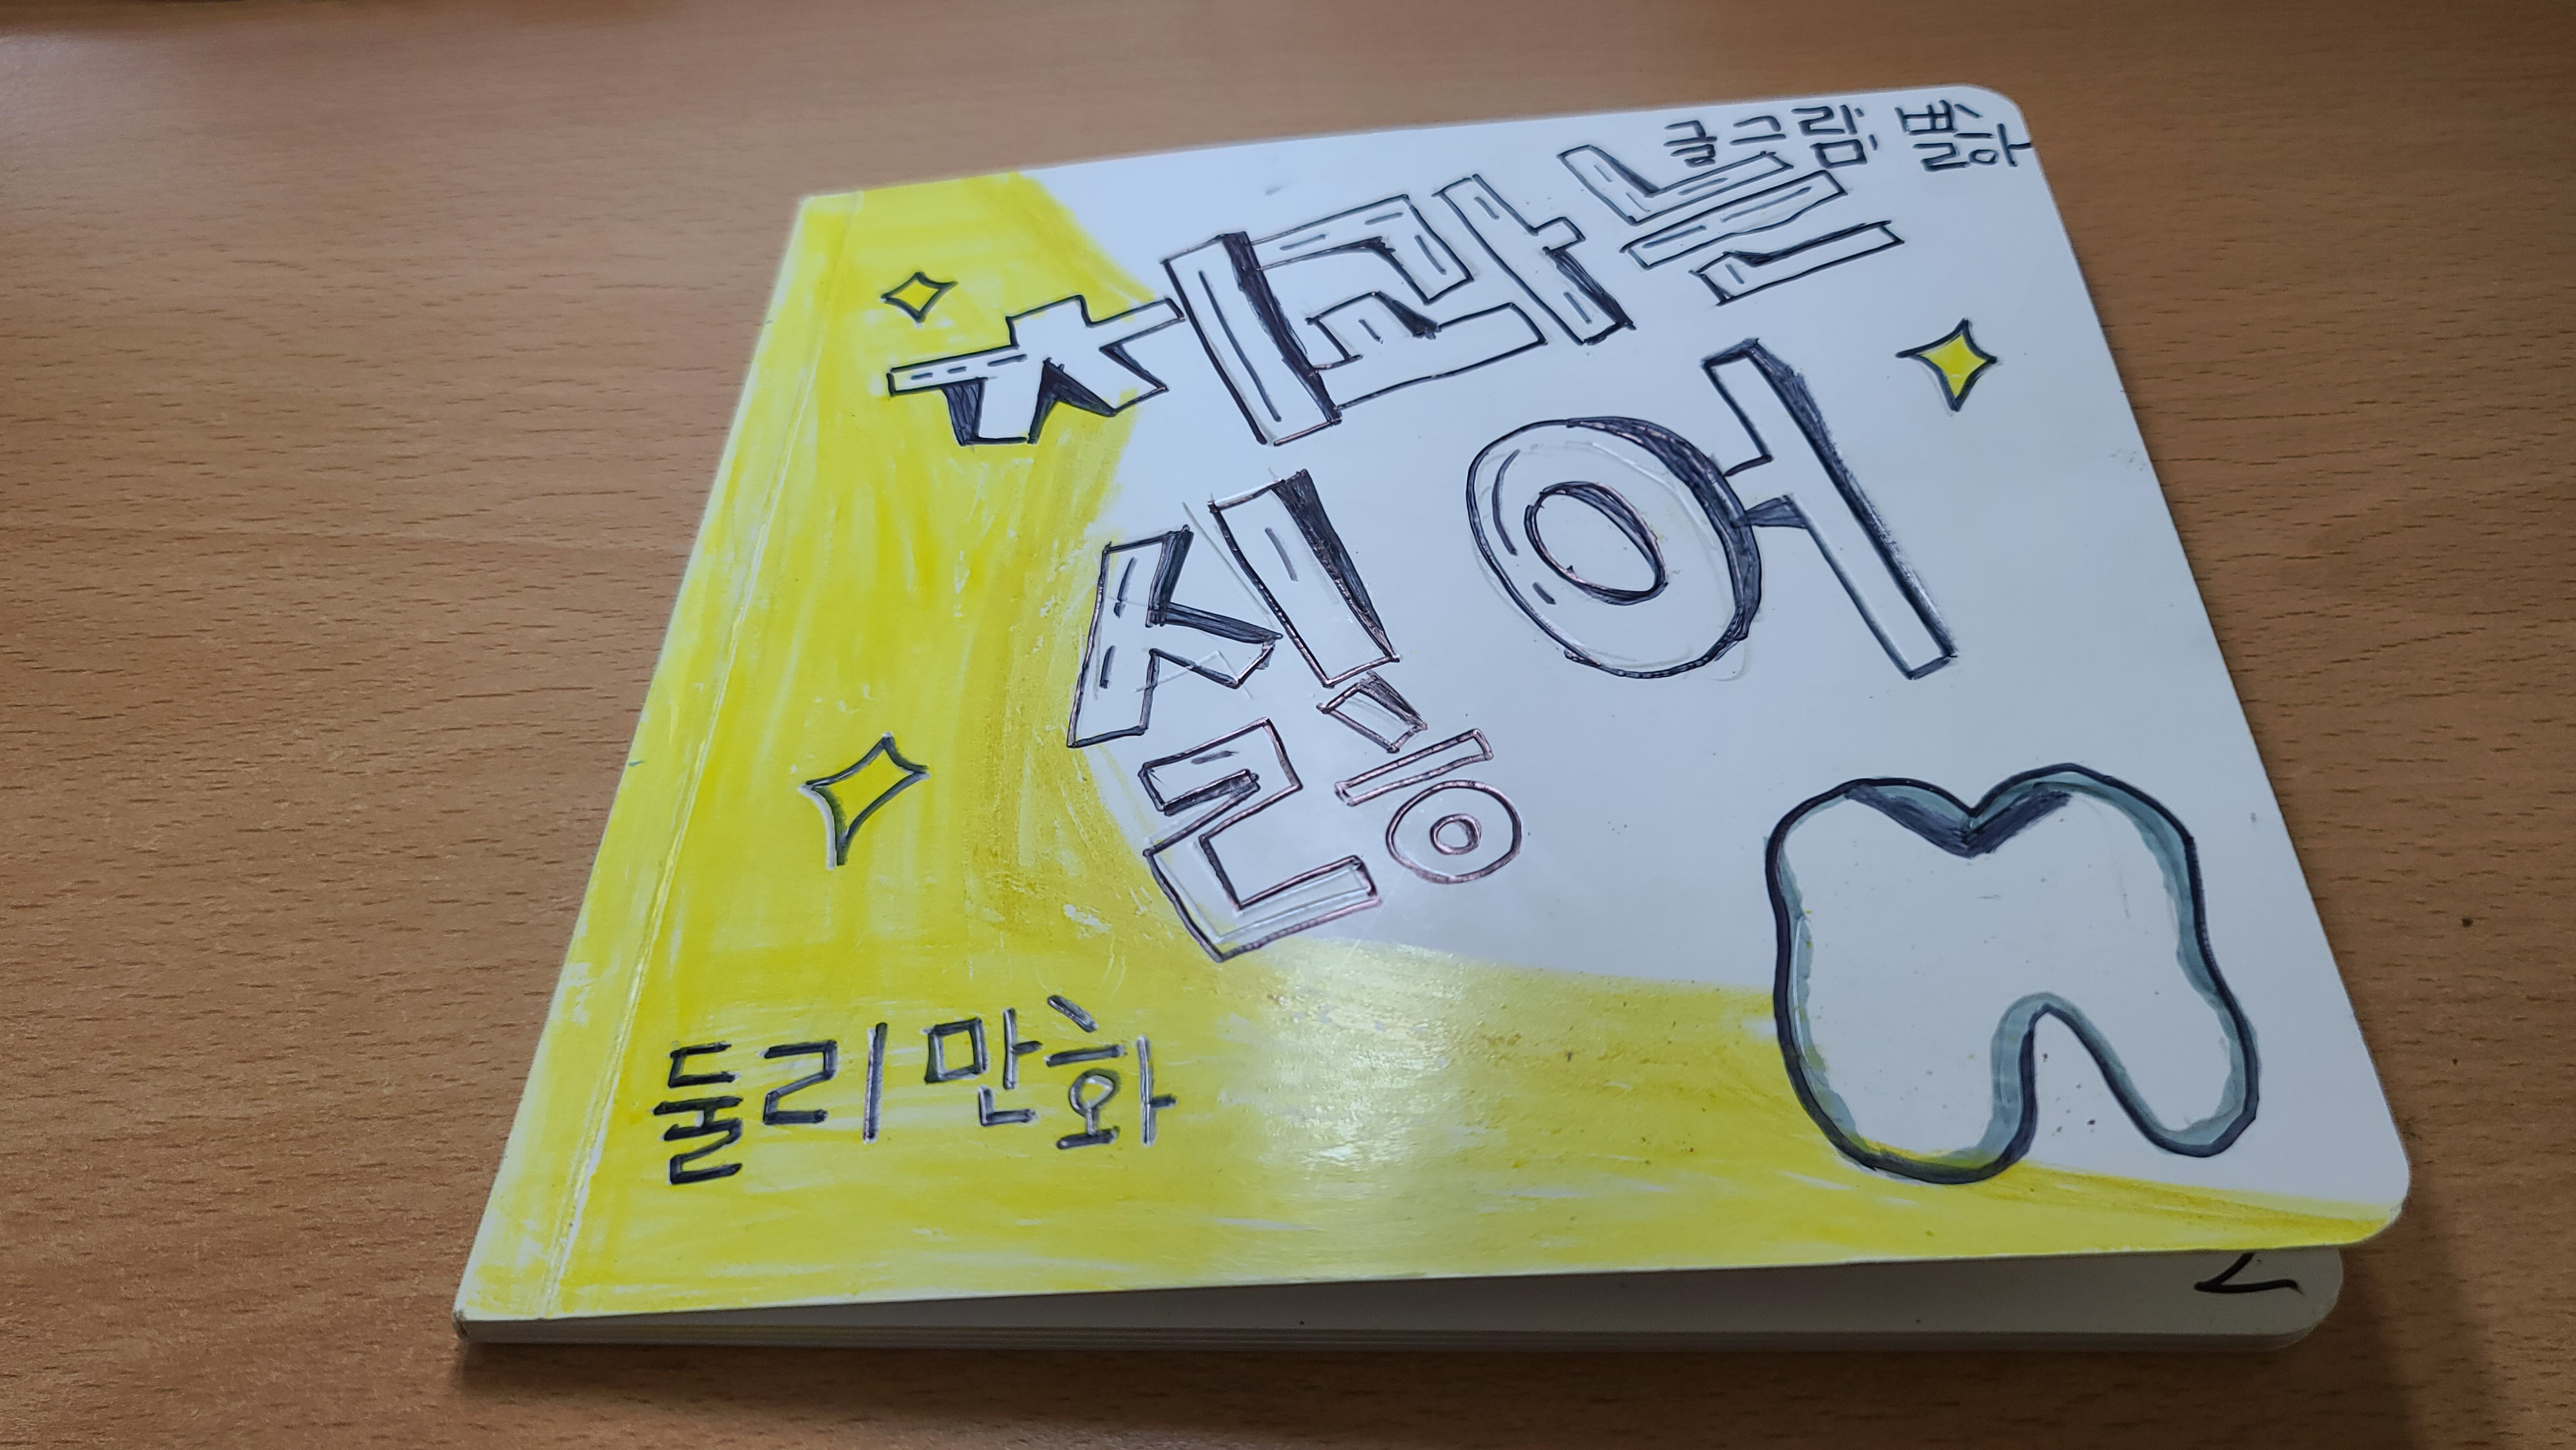 글그림
치과는
싫어
둘리 만화